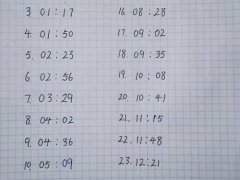 3. 01:17
4. 01:50
5. 02:23
6. 02:56
7. 03:29
8. 04:02
9. 04:36
10. 05:09
16. 08:28
17. 09:02
18. 09:35
19. 10:08
20. 10:41
21. 11:15
22. 11:48
23. 12:21